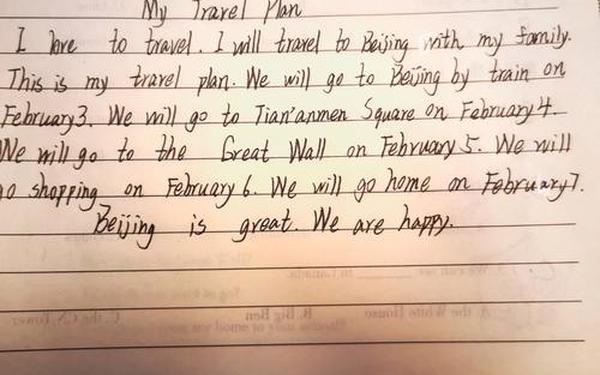 My Travel Plan
I love to travel. I will travel to Beijing with my family.
This is my travel plan. We will go to Beijing by train on
February 3. We will go to Tian'anmen Square on February 4.
We will go to the Great Wall on February 5. We will
go shopping on February 6. We will go home on February 7.
Beijing is great. We are happy.
We can see ______ in Canada.
A. the White House B. Big Ben C. the CN Tower